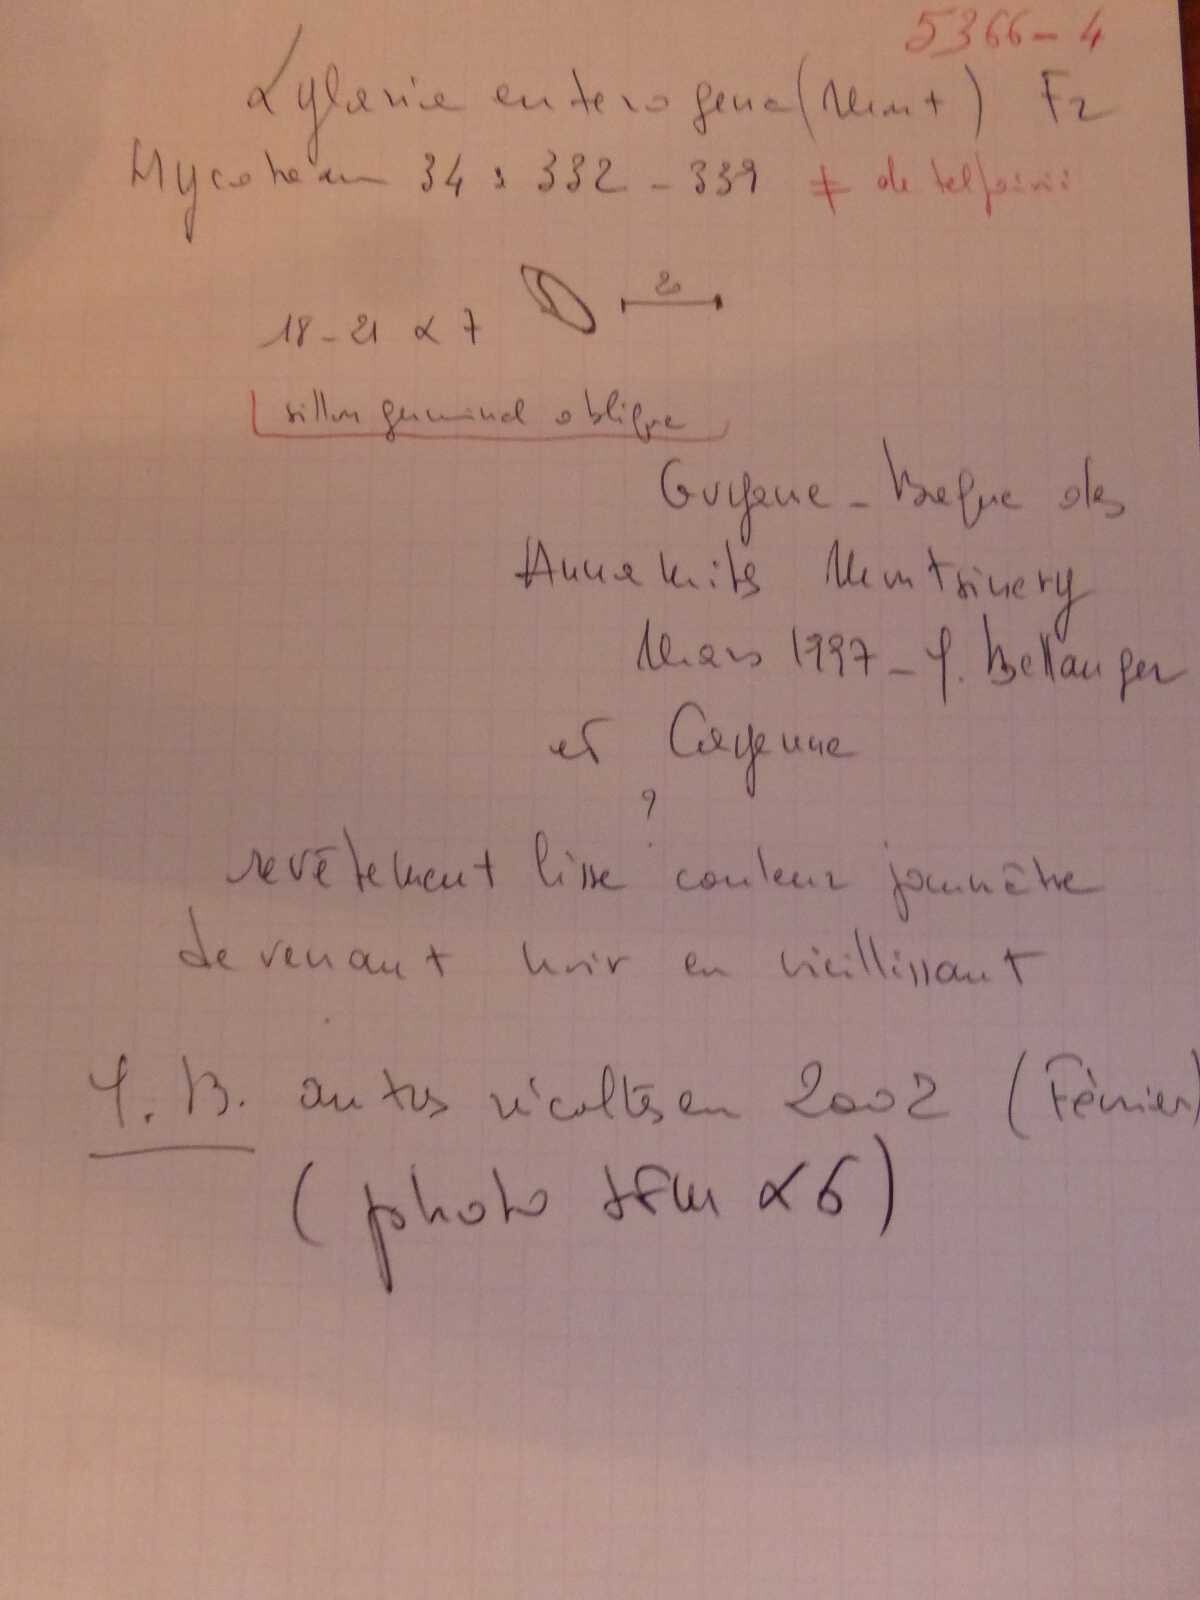 5366-4
Xylaria enterogena (Mont) Fr
Mycotaxon 34 : 332 - 339 ≠ de telfairii
20
18-21 x 7
sillon germinal oblique
Guyane - Bagne des
Annamites Montsinery
Mars 1997 - Y. Bellanger
et Cayenne
?
revêtement lisse couleur jaunâtre
devenant noir en vieillissant
Y. B. autres récoltes en 2002 (Février)
(photo x 6)